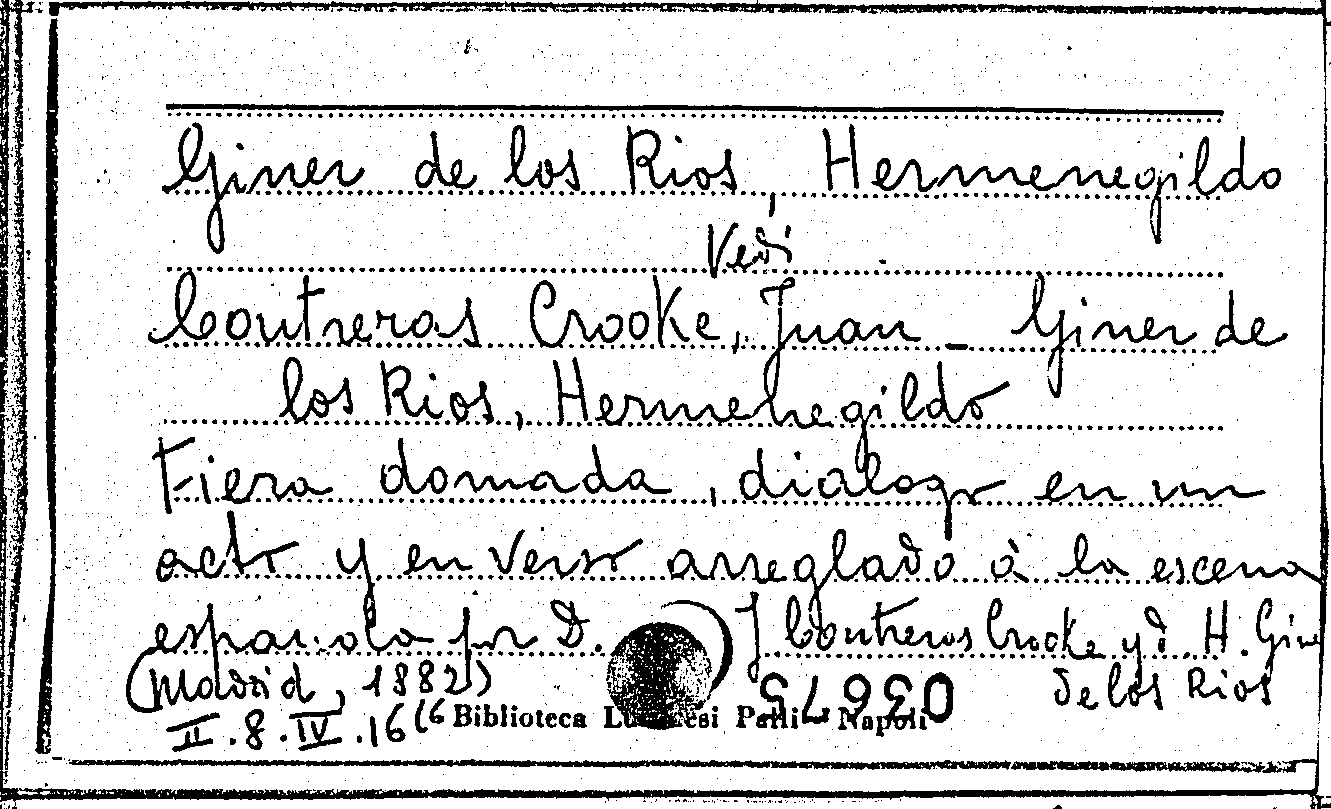 Giner de los Rios, Hermenegildo
Vedi
Contreras Crooke, Juan - Giner de
los Rios, Hermenegildo
Fiera domada, dialogo en un
acto y en verso arreglado à la escena
espanola por D. J Contreras Crooke y d. H. Gine
de los Rios
(Madrid, 1882)
II.8.IV.16(6
Biblioteca Lucchesi Palli Napoli
03675